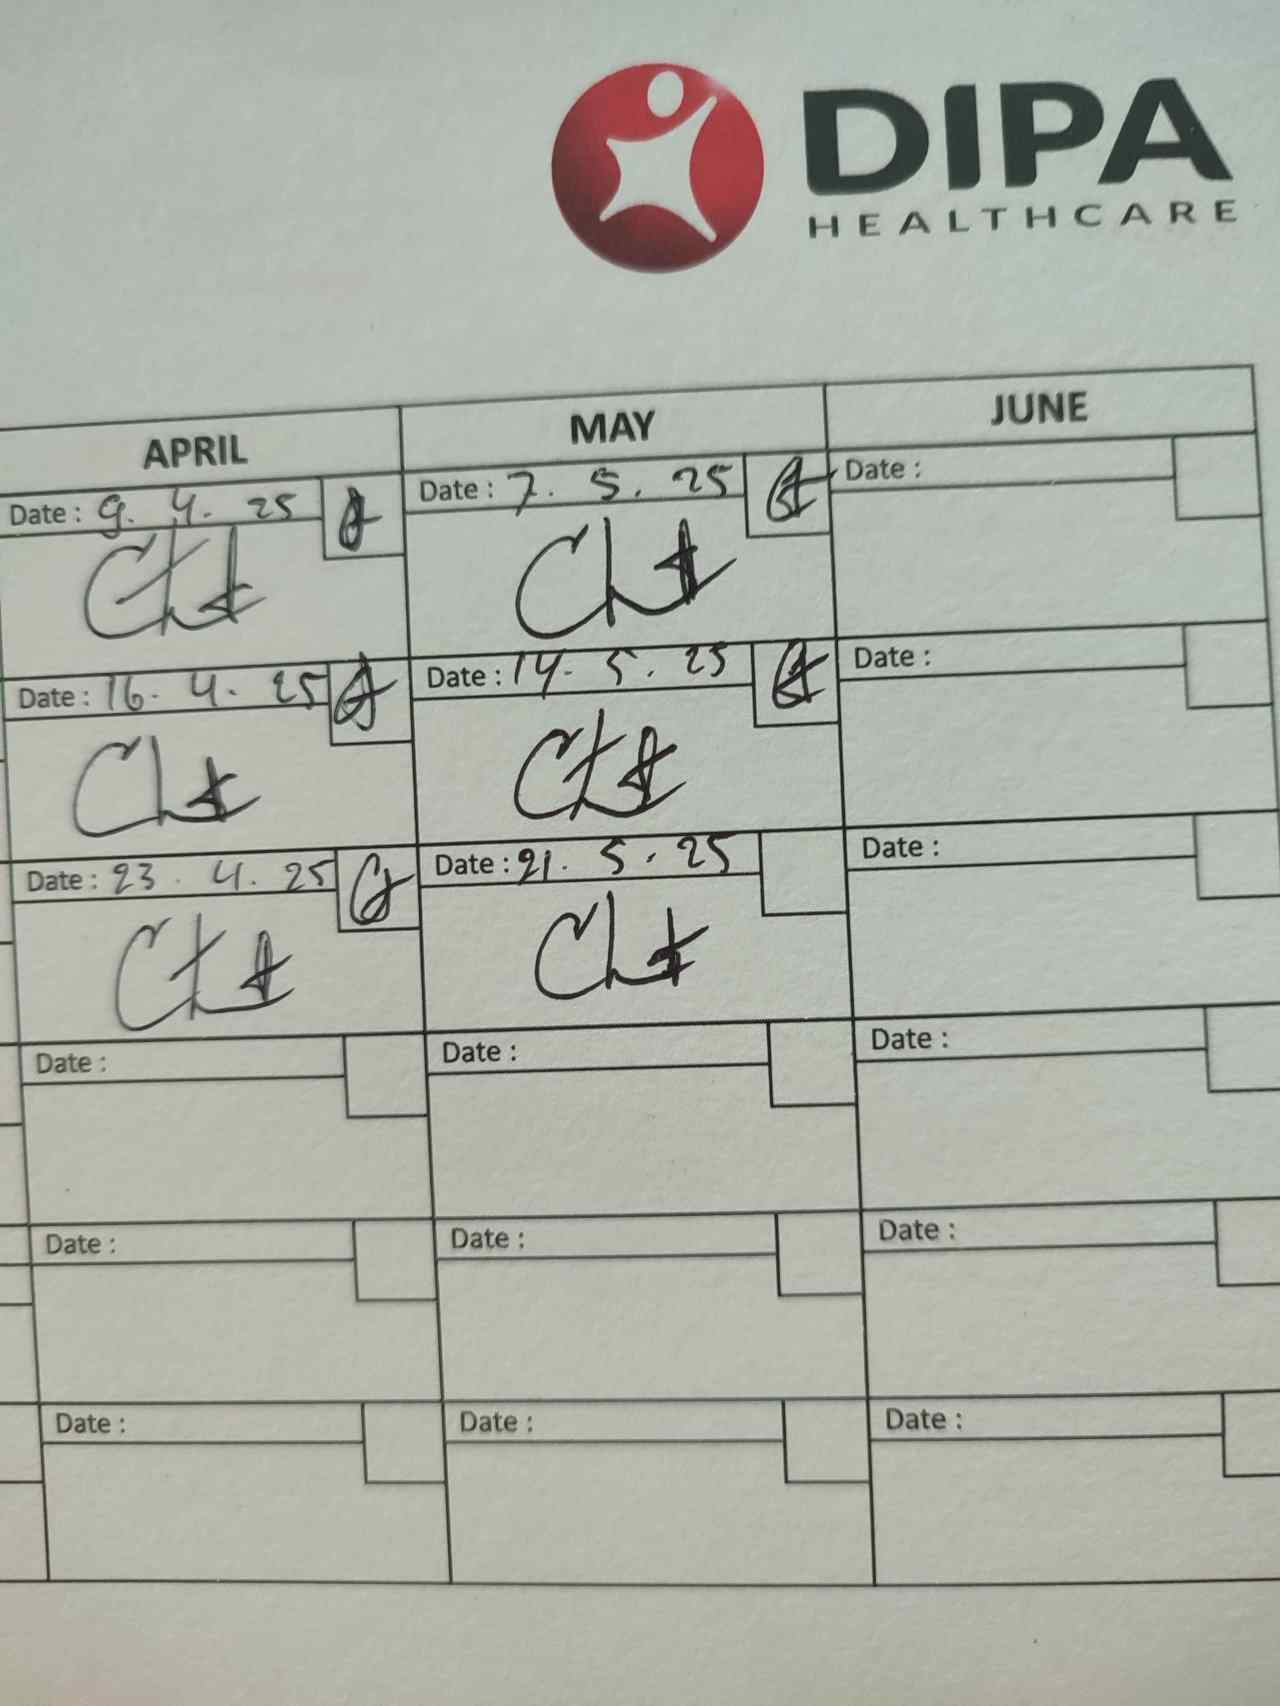 DIPA
HEALTHCARE
APRIL MAY JUNE
Date : 9. 4. 25 Date : 7. 5. 25 Date :
Date : 16. 4. 25 Date : 14. 5. 25 Date :
Date : 23. 4. 25 Date : 21. 5. 25 Date :
Date : Date : Date :
Date : Date : Date :
Date : Date : Date :